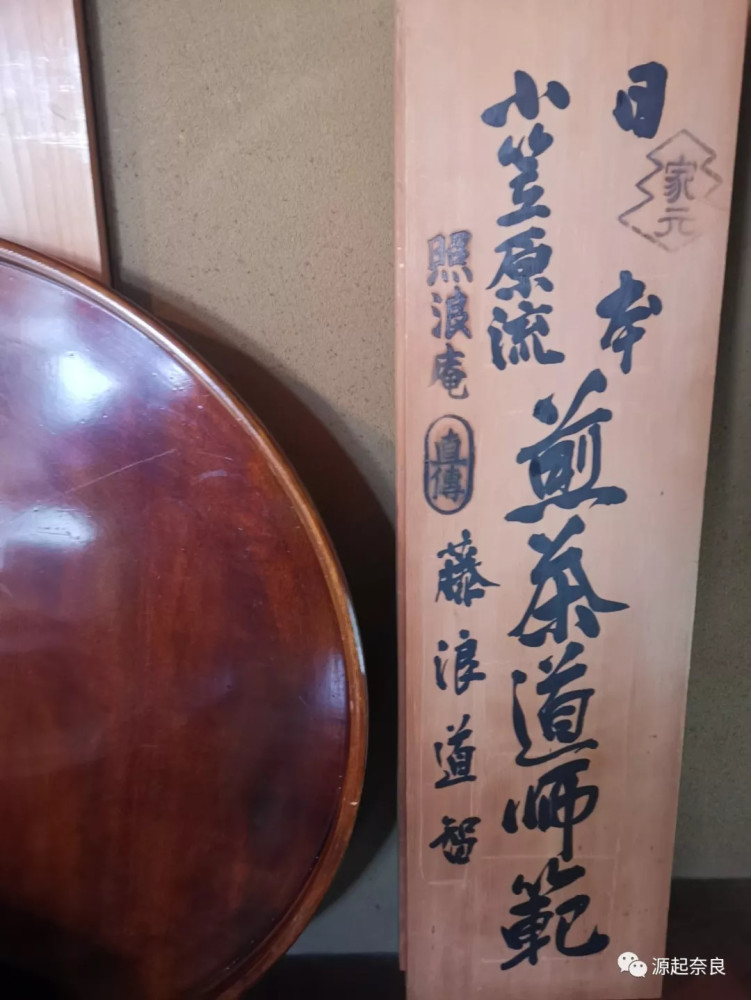 日本
家元
小笠原流
煎茶道師範
照浪庵
直傳
藤浪道智
源起奈良